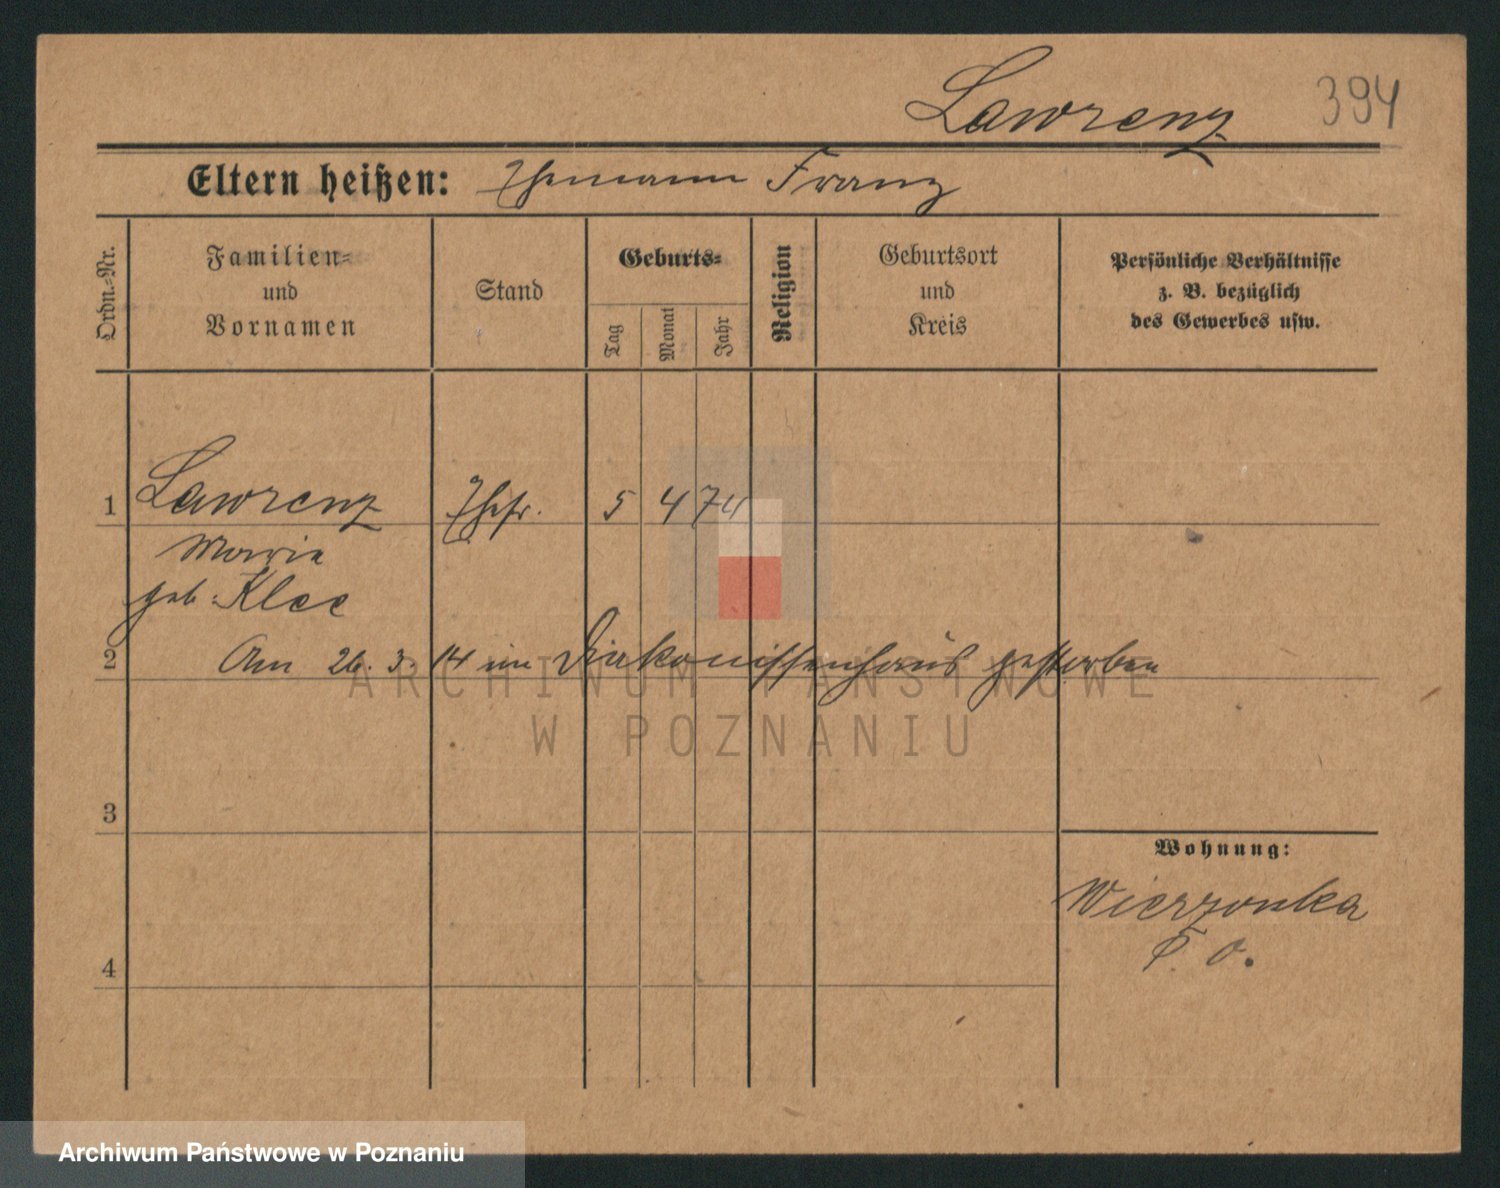 Lawrenz 394
Eltern heißen: Ehemann Franz
Ordn.-Nr.
Familien-
und
Vornamen
Stand
Geburts-
Tag
Monat
Jahr
Religion
Geburtsort
und
Kreis
Persönliche Verhältnisse
z. B. bezüglich
des Gewerbes usw.
1 Lawrenz Ehefr. 5 4 74
Marie
geb. Klee
2 Am 26. 3. 14 im Diakonissenhaus gestorben
ARCHIWUM PAŃSTWOWE
W POZNANIU
3
Wohnung:
Wierzonka
4
Archiwum Państwowe w Poznaniu